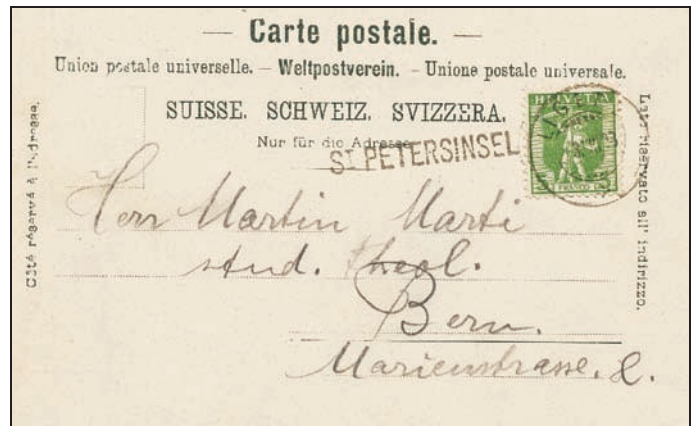 — Carte postale. —
Union postale universelle. – Weltpostverein. – Unione postale universale.
SUISSE. SCHWEIZ. SVIZZERA.
Nur für die Adresse
ST. PETERSINSEL
HELVETIA
FRANCO
Côté réservé à l'adresse.
Lato riservato all' indirizzo.
Herr Martin Marti
stud. theol.
Bern.
Marienstrasse. 8.